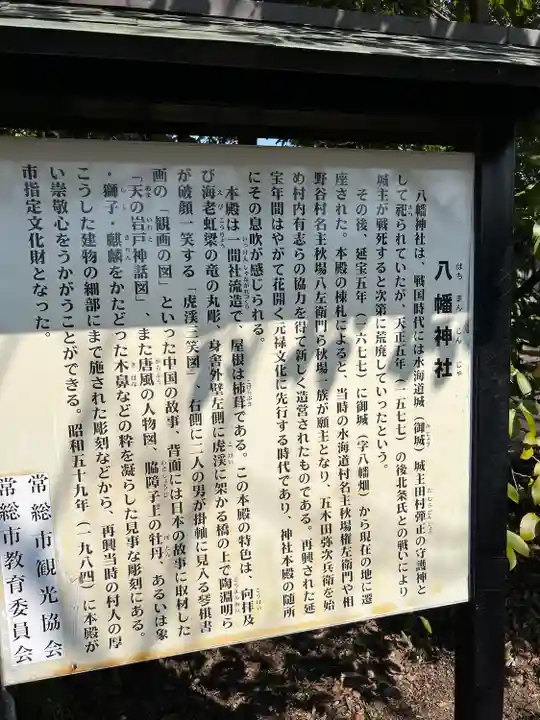 八幡神社
八幡神社は、戦国時代には水海道城（御城）城主田村弾正の守護神と
して祀られていたが、天正五年（一五七七）の後北条氏との戦いにより
城主が戦死すると次第に荒廃していったという。
その後、延宝五年（一六七七）に御城（字八幡畑）から現在の地に遷
座された。本殿の棟札によると、当時の水海道村名主秋場権左衛門や相
野谷村名主秋場八左衛門ら秋場一族が願主となり、五木田弥次兵衛を始
め村内有志らの協力を得て新しく造営されたものである。再興された延
宝年間はやがて花開く元禄文化に先行する時代であり、神社本殿の随所
にその息吹が感じられる。
本殿は一間社流造で、屋根は杮葺である。この本殿の特色は、向拝及
び海老虹梁の竜の丸彫、身舎外壁左側に虎渓に架かる橋の上で陶淵明ら
が破顔一笑する「虎渓三笑図」、右側に二人の男が掛軸に見入る琴棋書
画の「観画の図」といった中国の故事、背面には日本の故事に取材した
「天の岩戸神話図」、また唐風の人物図、脇障子上の牡丹、あるいは象
・獅子・麒麟をかたどった木鼻などの粋を凝らした見事な彫刻にある。
こうした建物の細部にまで施された彫刻などから、再興当時の村人の厚
い崇敬心をうかがうことができる。昭和五十九年（一九八四）に本殿が
市指定文化財となった。
常総市観光協会
常総市教育委員会